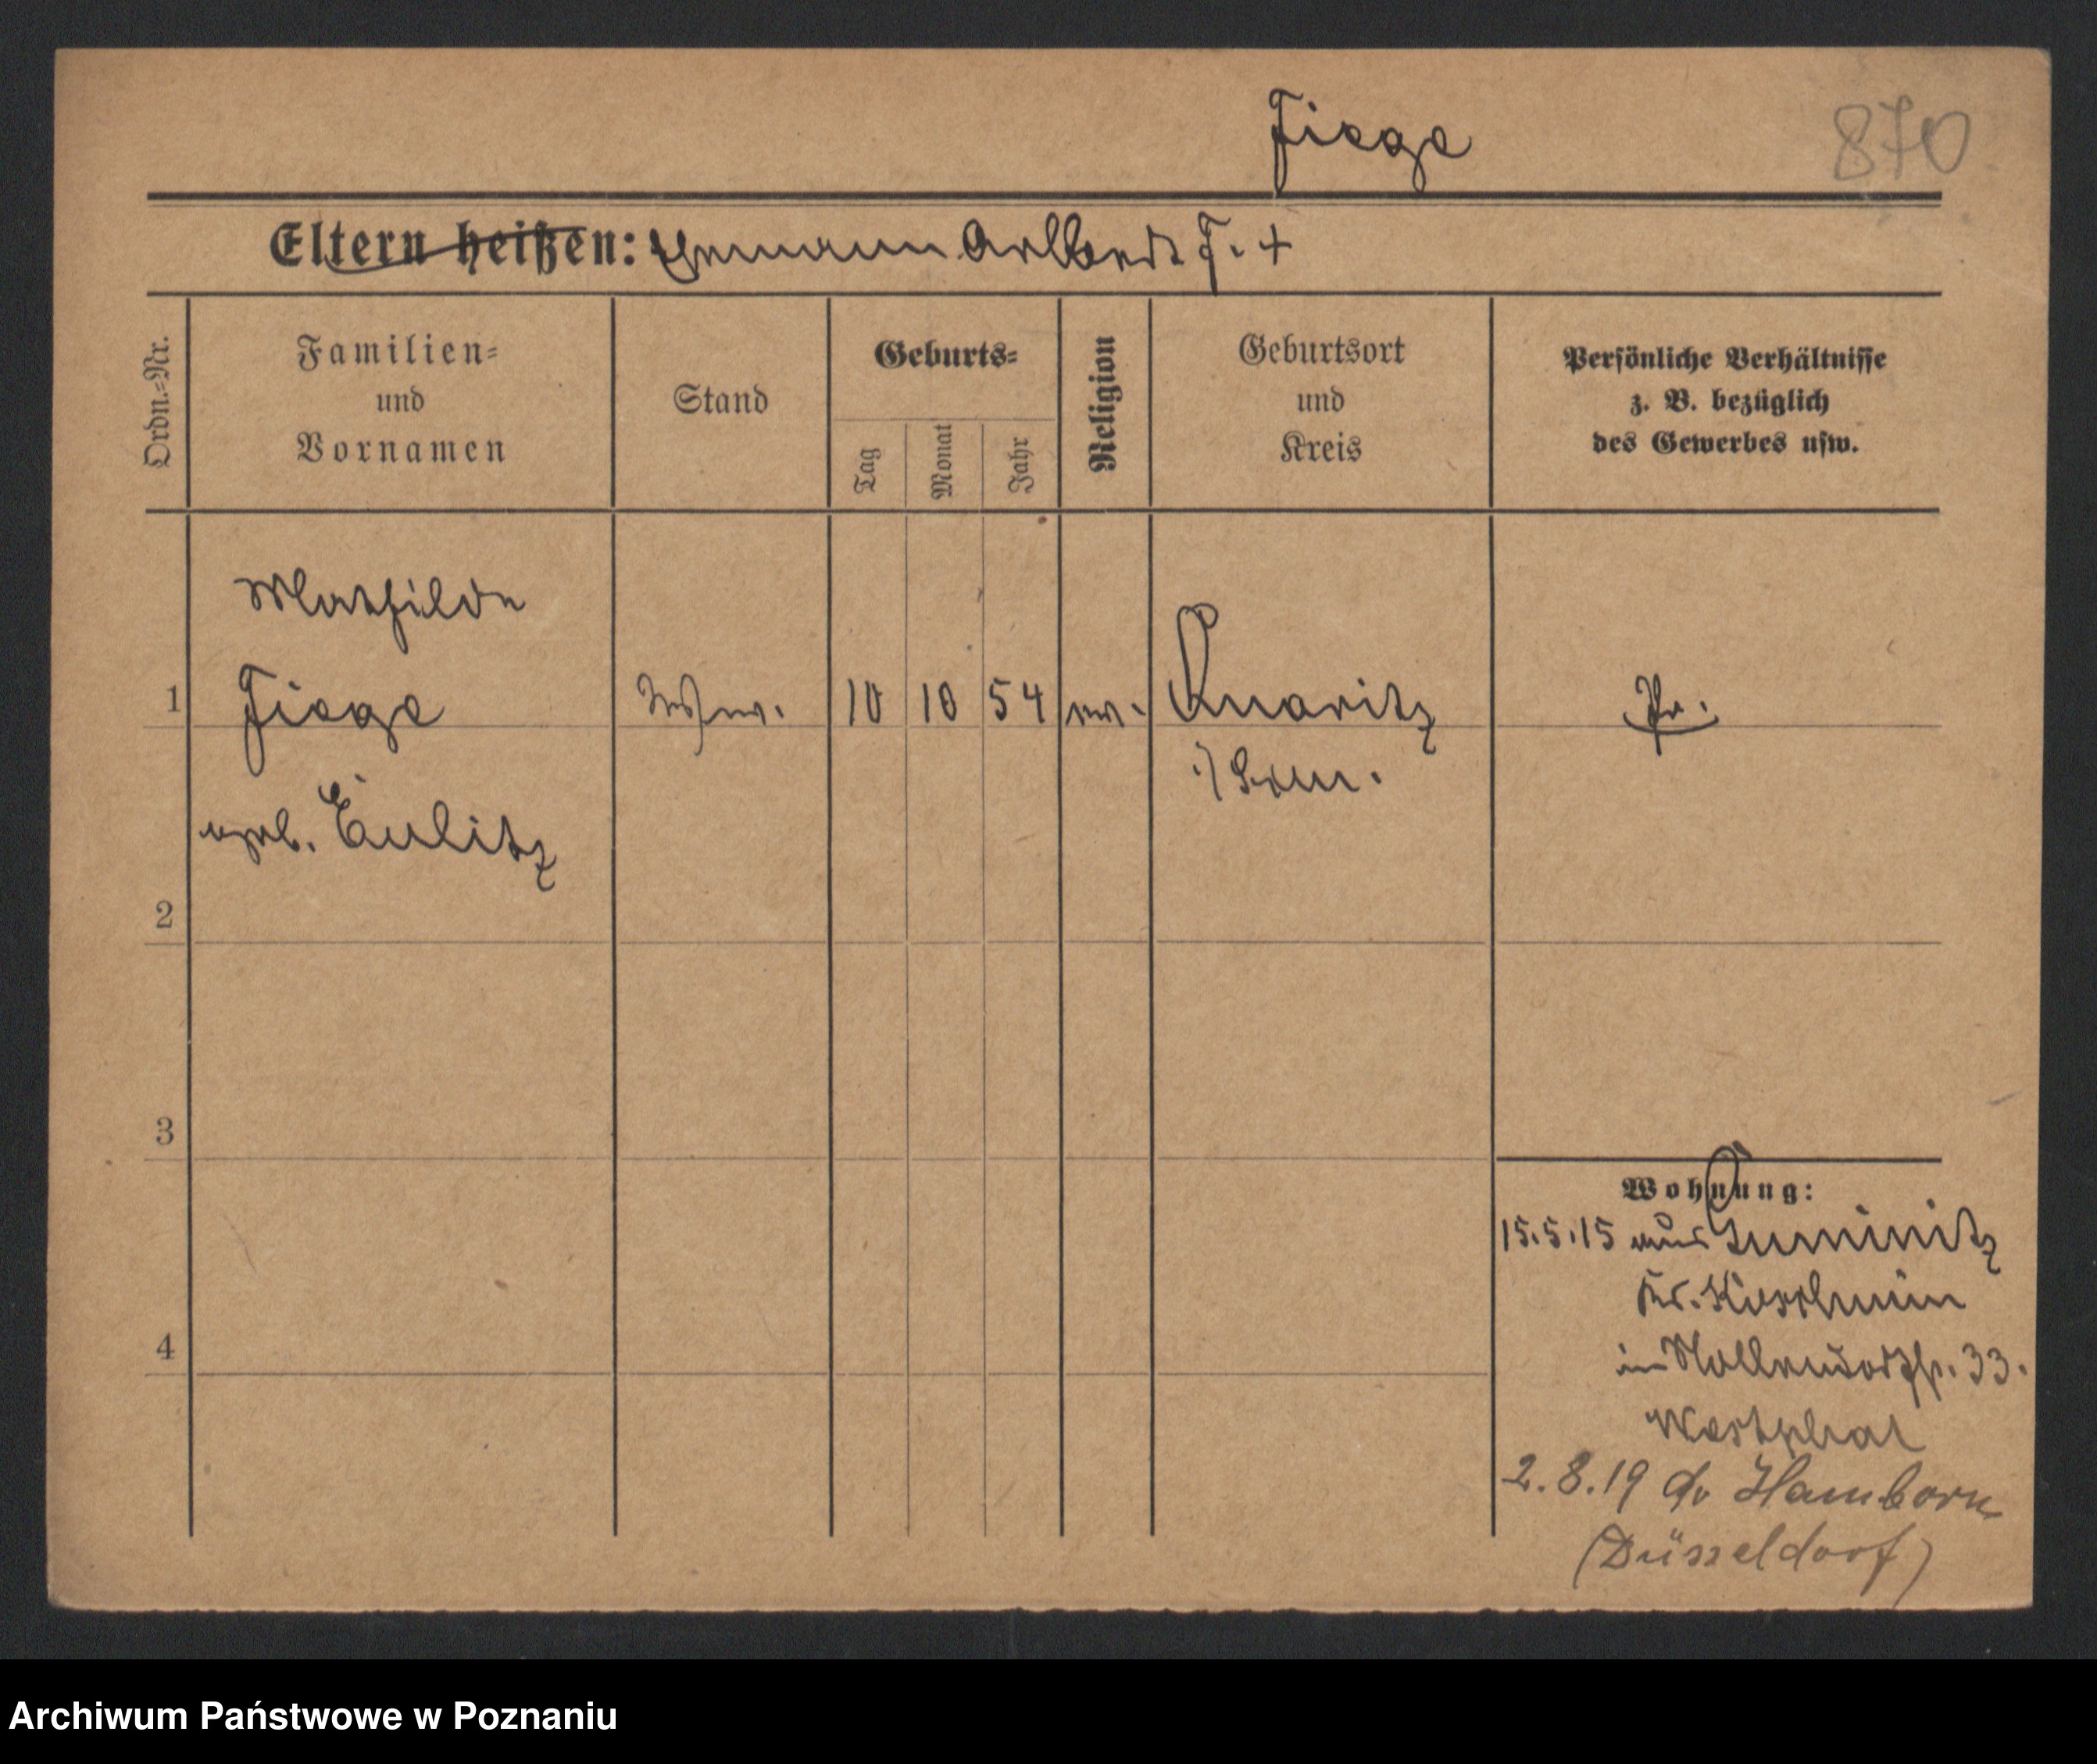 Fiege
870
Eltern heißen: Ehemann Albert F. +
Ordn.-Nr.
Familien-
und
Vornamen
Stand
Geburts-
Tag
Monat
Jahr
Religion
Geburtsort
und
Kreis
Persönliche Verhältnisse
z. B. bezüglich
des Gewerbes usw.
Mathilde
1 Fiege Wwe. 10 10 54 ev. Quaritz Pr.
geb. Eulitz
2
3
4
Wohnung:
15.5.15 aus
Kr.
in Nollendorfstr. 33.
Westphal
2.8.19 Hamborn
(Düsseldorf)
Archiwum Państwowe w Poznaniu